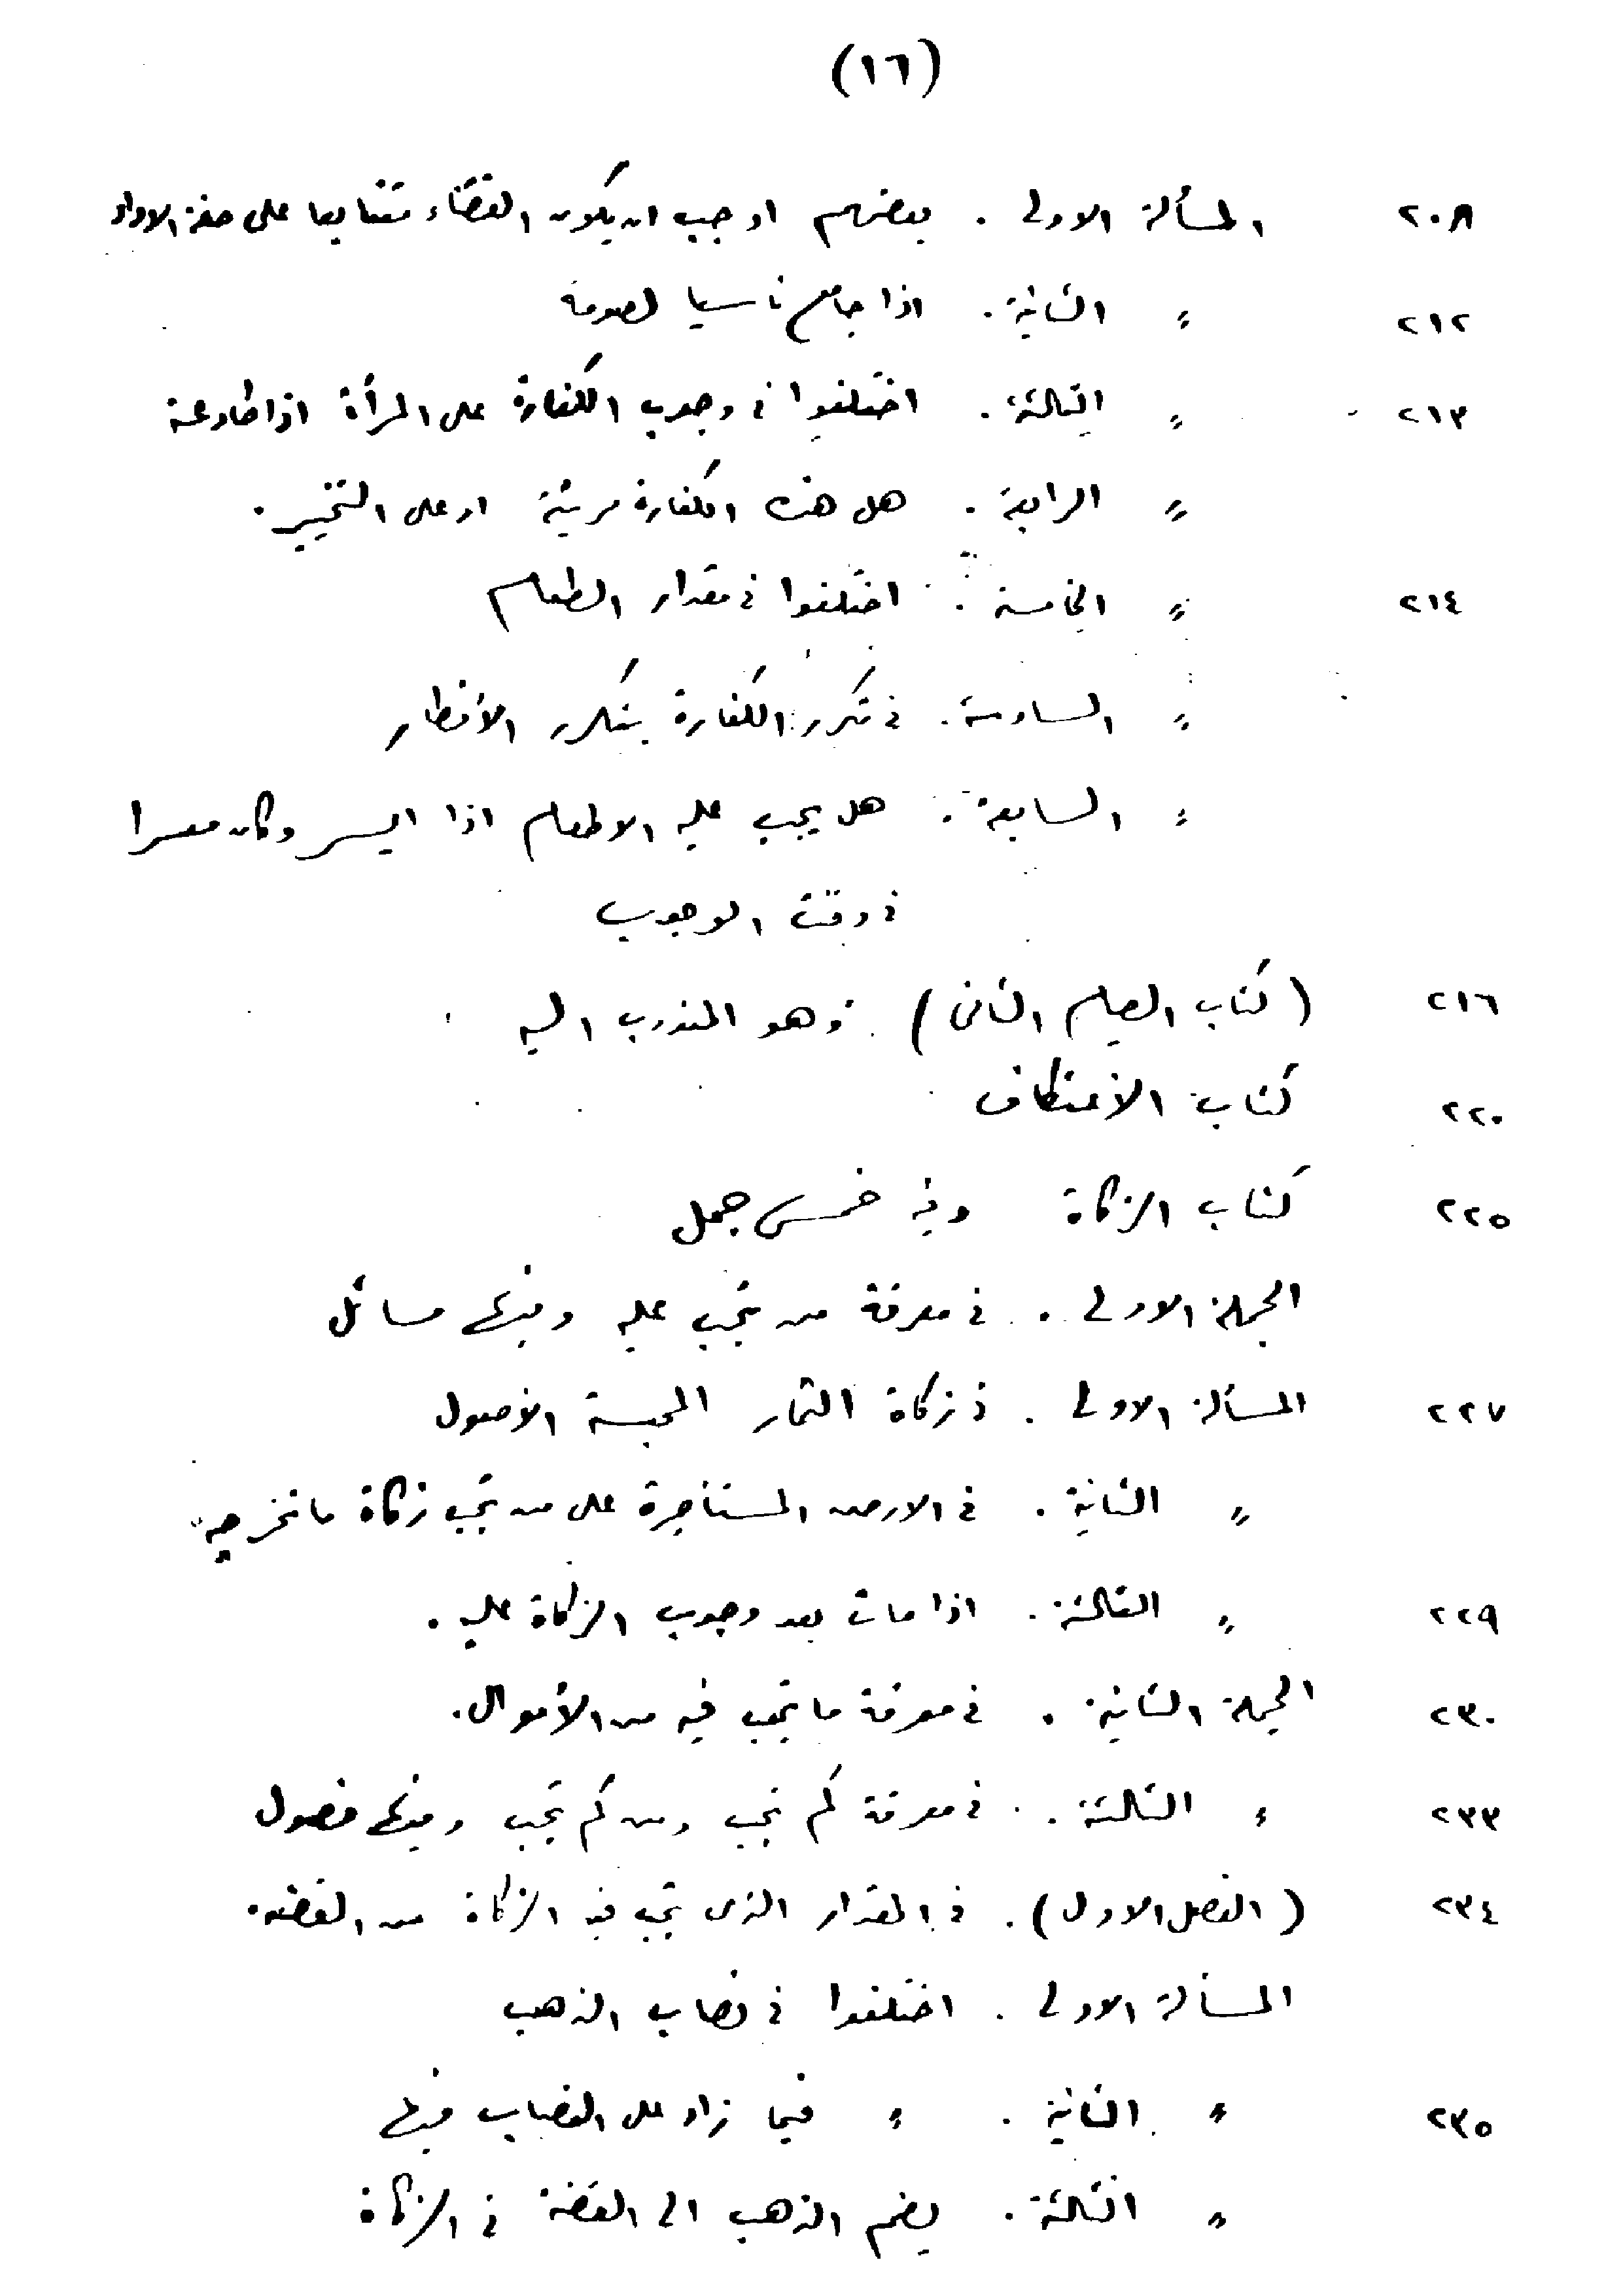 (١٦)
٢٠٨ المسألة الاولى . بعضهم اوجب ان يكون القضاء متتابعا على صفة الاداء
٢١٢ » الثانية . اذا جامع ناسيا لصومه
٢١٣ » الثالثة . اختلفوا فى وجوب الكفارة على المرأة اذا طاوعته
» الرابعة . هل هذه الكفارة مرتبة او على التخيير .
٢١٤ » الخامسة . اختلفوا فى مقدار الطعام
» السادسة . فى تكرر الكفارة بتكرر الأفطار
» السابعة . هل يجب عليه الاطعام اذا ايسر وكان معسرا
فى وقت الوجوب
٢١٦ (كتاب الصيام الثانى) . وهو المندوب اليه
٢٢٠ كتاب الأعتكاف
٢٢٥ كتاب الزكاة وفيه خمس جمل
الجملة الاولى . فى معرفة من تجب عليه وفيها مسائل
٢٢٧ المسألة الاولى . فى زكاة الثمار المحبسة الأصول
» الثانية . فى الارض المستأجرة على من تجب زكاة ما تخرجه
٢٢٩ » الثالثة . اذا مات بعد وجوب الزكاة عليه .
٢٣٠ الجملة الثانية . فى معرفة ما تجب فيه من الأموال .
٢٣٣ » الثالثة . فى معرفة كم تجب ومن كم تجب وفيها فصول
٢٣٤ (الفصل الاول) . فى المقدار الذى تجب فيه الزكاة من الفضة .
المسألة الاولى . اختلفوا فى نصاب الذهب
٢٣٥ » الثانية . » فيما زاد على النصاب فيها
» الثالثة . يضم الذهب الى الفضة فى الزكاة